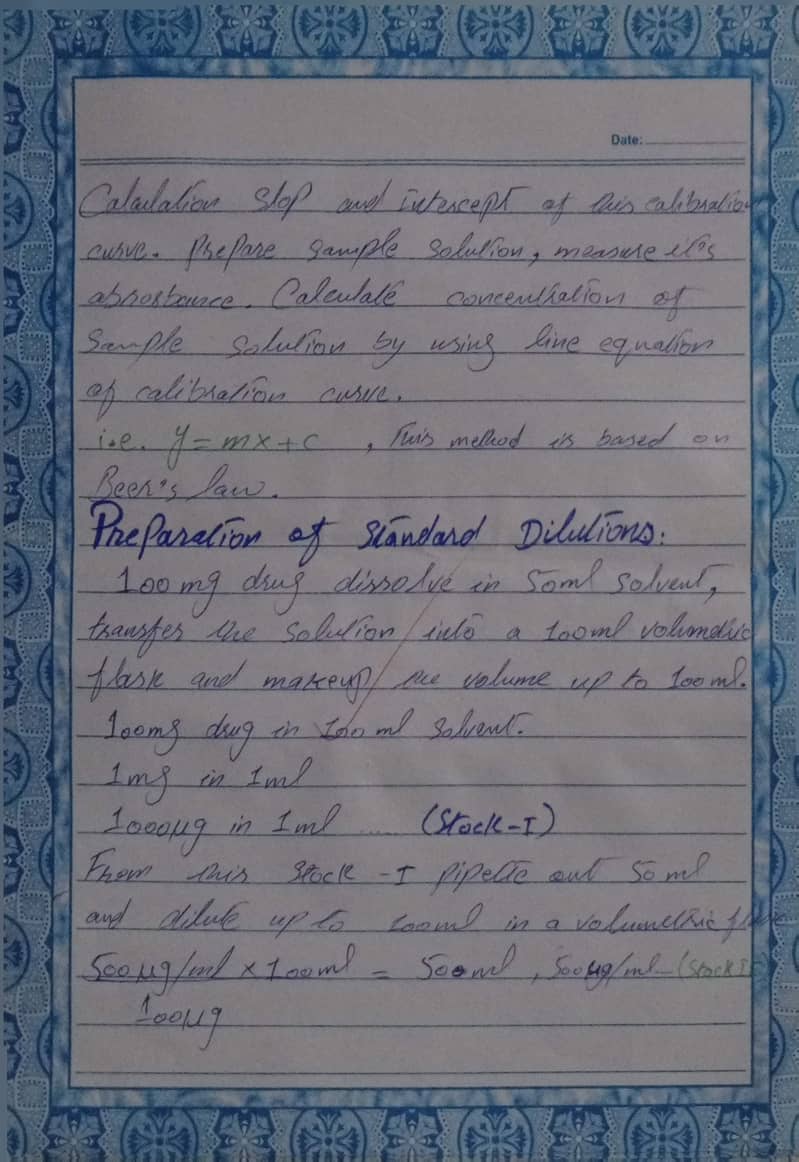 Date:
Calculation Slop and intercept of this calibration
curve. Prepare sample solution, measure it's
absorbance. Calculate concentration of
Sample solution by using line equation
of calibration curve.
i.e. y = mx + c , This method is based on
Beer's law.
Preparation of Standard Dilutions:
100 mg drug dissolve in 50ml solvent,
transfer the solution into a 100ml volumetric
flask and makeup the volume up to 100ml.
100mg drug in 100 ml solvent.
1mg in 1ml
1000µg in 1ml ..... (Stock-I)
From this Stock -I pipette out 50 ml
and dilute up to 100ml in a volumetric flask
500µg/ml × 100ml = 500ml , 500µg/ml-(Stock II)
100µg